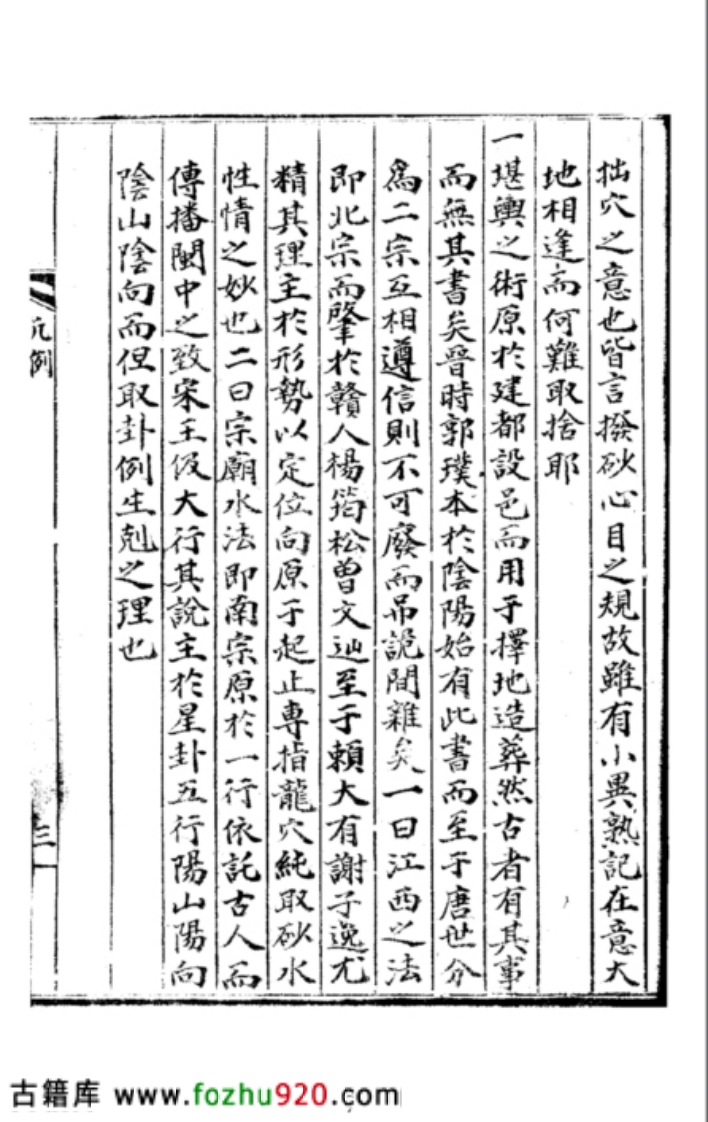 拙穴之意也皆言撥砂心目之規故雖有小異熟記在意大
地相逢而何難取捨耶
一堪輿之術原於建都設邑而用于擇地造葬然古者有其事
而無其書矣晉時郭璞本於陰陽始有此書而至于唐世分
爲二宗互相遵信則不可廢而吊詭間雜矣一曰江西之法
即北宗而肇於贛人楊筠松曾文辿至于賴大有謝子逸尤
精其理主於形勢以定位向原于起止專指龍穴純取砂水
性情之妙也二曰宗廟水法即南宗原於一行依託古人而
傳播閩中之致宋王伋大行其說主於星卦五行陽山陽向
陰山陰向而但取卦例生剋之理也
凡例
三
古籍库 www.fozhu920.com